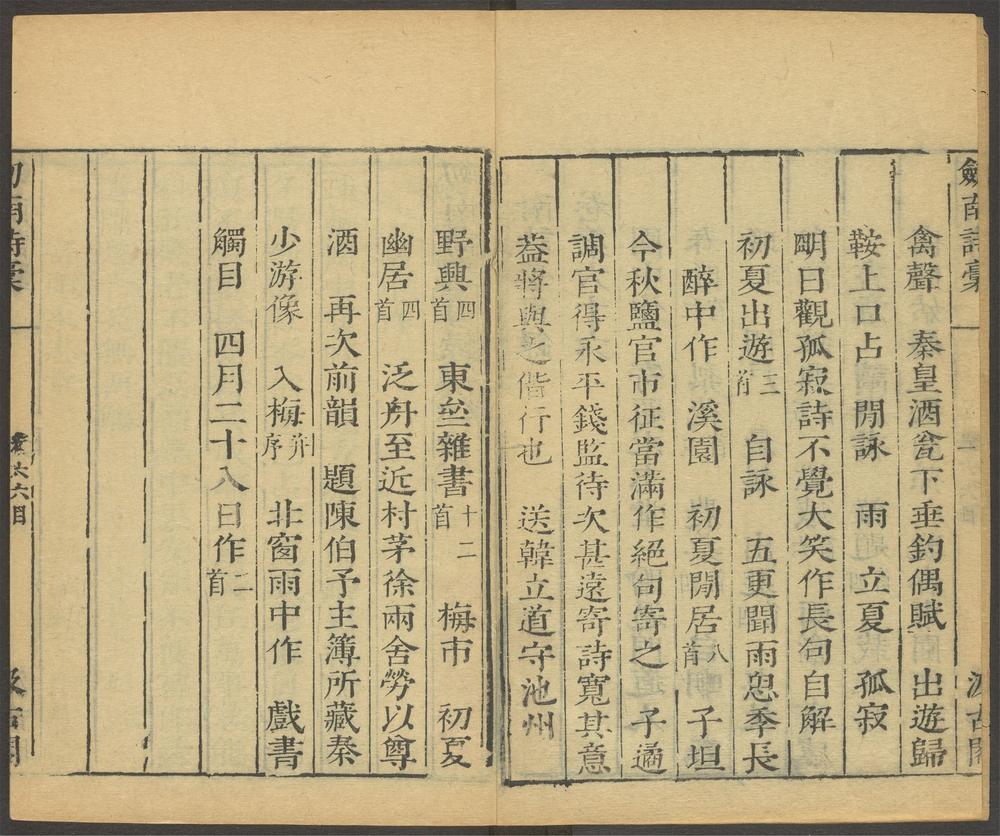 劒南詩稾 汲古閣
禽聲 秦皇酒瓮下垂釣偶賦 出遊歸
鞍上口占 閒詠 雨 立夏 孤寂
明日觀孤寂詩不覺大笑作長句自解
初夏出遊三首 自詠 五更聞雨思季長
醉中作 溪園 初夏閒居八首 子坦
今秋鹽官市征當滿作絕句寄之 子遹
調官得永平錢監待次甚遠寄詩寬其意
葢將與之偕行也 送韓立道守池州
野興四首 東籬雜書十二首 梅市 初夏
幽居四首 泛舟至近村茅徐兩舍勞以尊
酒 再次前韻 題陳伯予主簿所藏秦
少游像 入梅并序 北窗雨中作 戲書
觸目 四月二十八日作二首
劒南詩稾 卷六六目 汲古閣